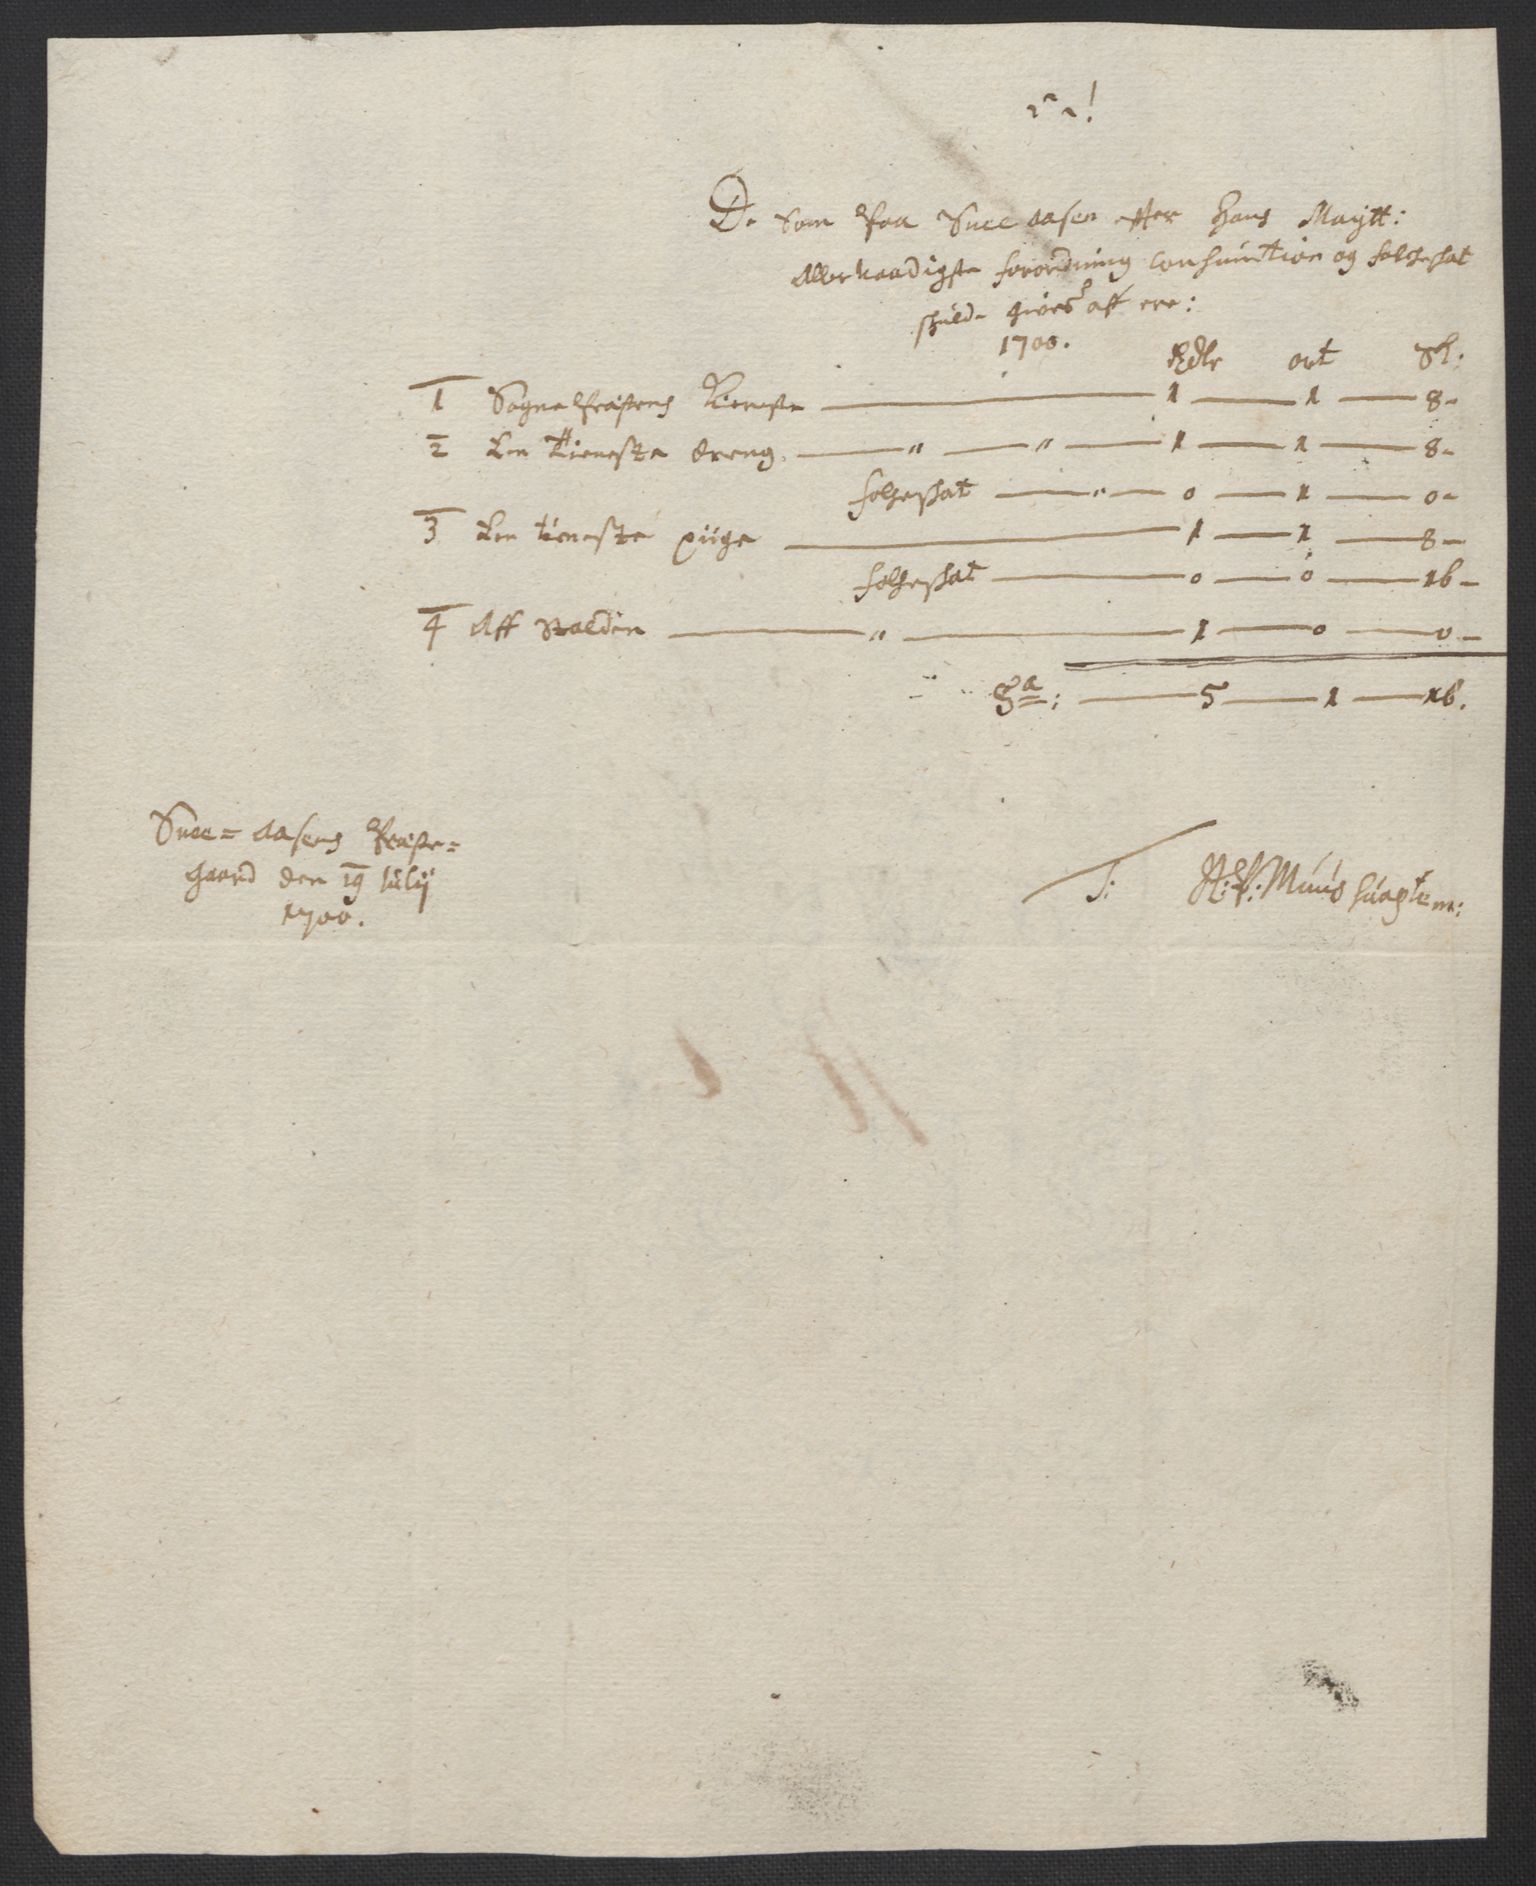 De Som Paa Snee aasen effter Hans Maytt:
Allernaadigste forordning consumtion og folcheskat
skuld gives aff ere:
1700.
Rdlr ort Sk:
1 Sogne Præstens tieneste 1 1 8
2 Een tieneste dreng " " 1 1 8
folcheskat " 0 1 0
3 Een tieneste piige 1 1 8
folcheskat 0 0 16
4 Aff " 1 0 0
Sa: 5 1 16.
Snee= Aasens Præste=
Gaard den 19 Julij
1700.
A: P: Muus